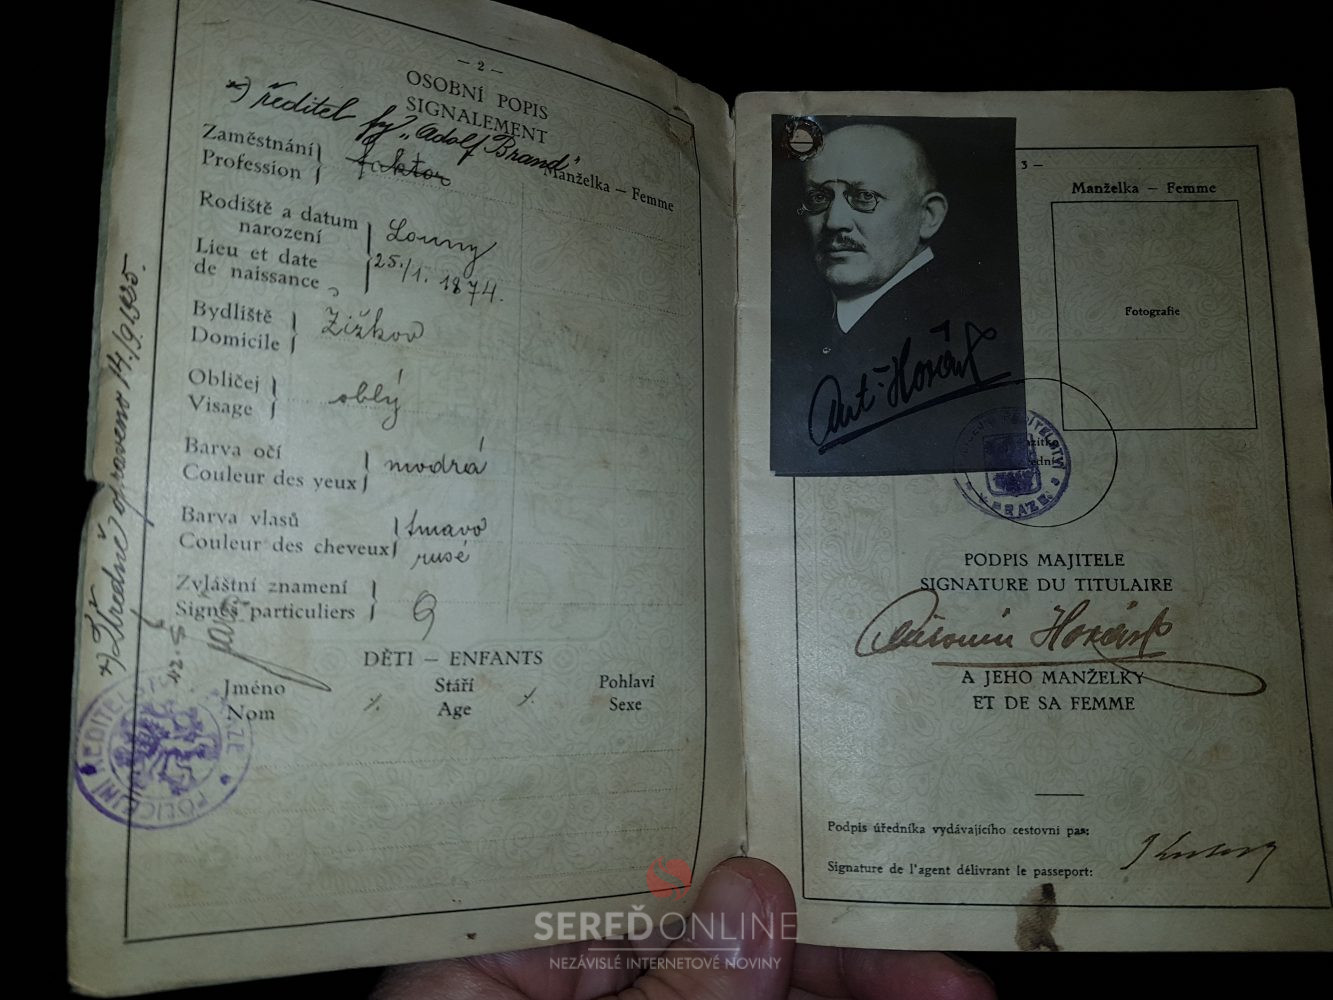 – 2 –
OSOBNÍ POPIS
SIGNALEMENT
*) ředitel fy „Adolf Brand"
Zaměstnání
Profession
faktor
Manželka – Femme
Rodiště a datum
narození
Lieu et date
de naissance
Louny
25./1. 1874.
Bydliště
Domicile
Žižkov
Obličej
Visage
oblý
Barva očí
Couleur des yeux
modrá
Barva vlasů
Couleur des cheveux
tmavo
rusé
Zvláštní znamení
Signes particuliers
DĚTI – ENFANTS
Jméno
Nom
Stáří
Age
Pohlaví
Sexe
*) Úředně opraveno 14./9. 1925.
POLICEJNÍ ŘEDITELSTVÍ V PRAZE
3 –
Manželka – Femme
Fotografie
Ant. Horák
V PRAZE
PODPIS MAJITELE
SIGNATURE DU TITULAIRE
Antonín Horák
A JEHO MANŽELKY
ET DE SA FEMME
Podpis úředníka vydávajícího cestovní pas:
Signature de l'agent délivrant le passeport:
SEREĎONLINE
NEZÁVISLÉ INTERNETOVÉ NOVINY